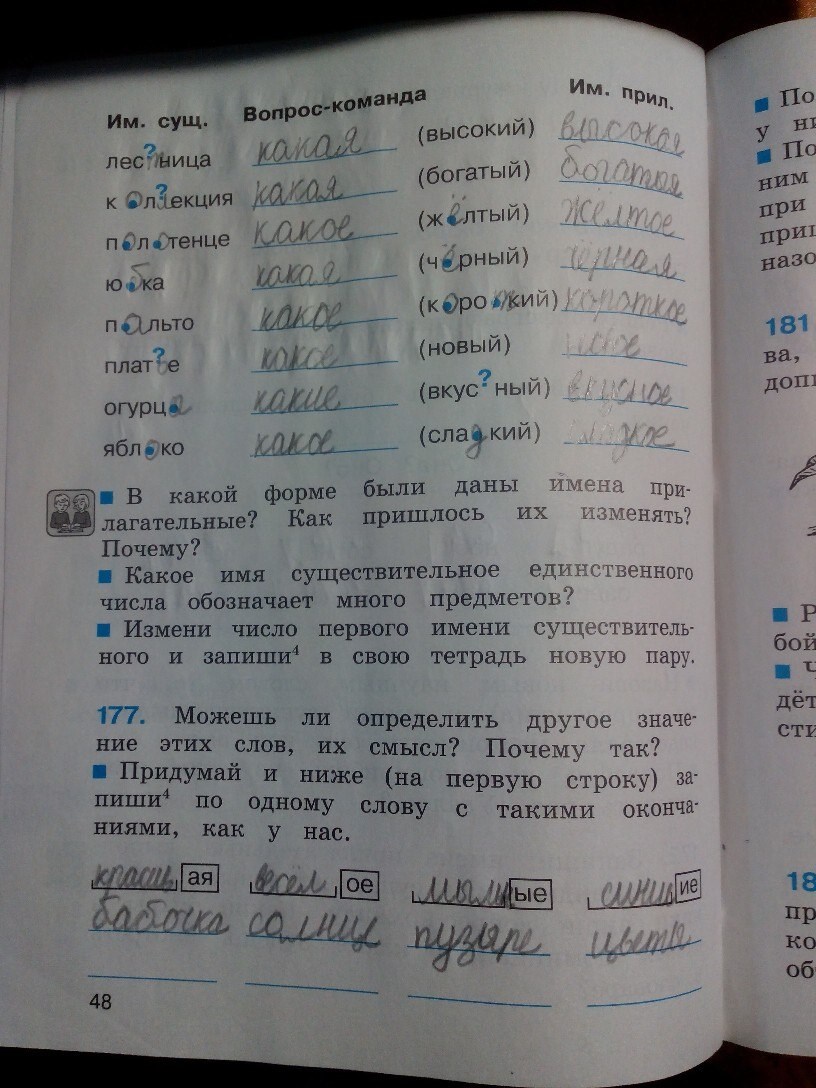 Им. сущ. Вопрос-команда Им. прил.
лес?ница какая (высокий) высокая
коллекция какая (богатый) богатая
полотенце какое (жёлтый) жёлтое
юбка какая (чёрный) чёрная
пальто какое (короткий) короткое
плат?е какое (новый) новое
огурцы какие (вкус?ный) вкусное
яблоко какое (сладкий) сладкое
В какой форме были даны имена при-
лагательные? Как пришлось их изменять?
Почему?
Какое имя существительное единственного
числа обозначает много предметов?
Измени число первого имени существитель-
ного и запиши⁴ в свою тетрадь новую пару.
177. Можешь ли определить другое значе-
ние этих слов, их смысл? Почему так?
Придумай и ниже (на первую строку) за-
пиши⁴ по одному слову с такими оконча-
ниями, как у нас.
ая весёл ое мыльн ые ие
бабочка солнце пузыре цветы
48
По
у ни
По
ним
при
приш
назо
181
ва,
допи
Р
бой
Ч
дёт
сти
18
пр
ко
об